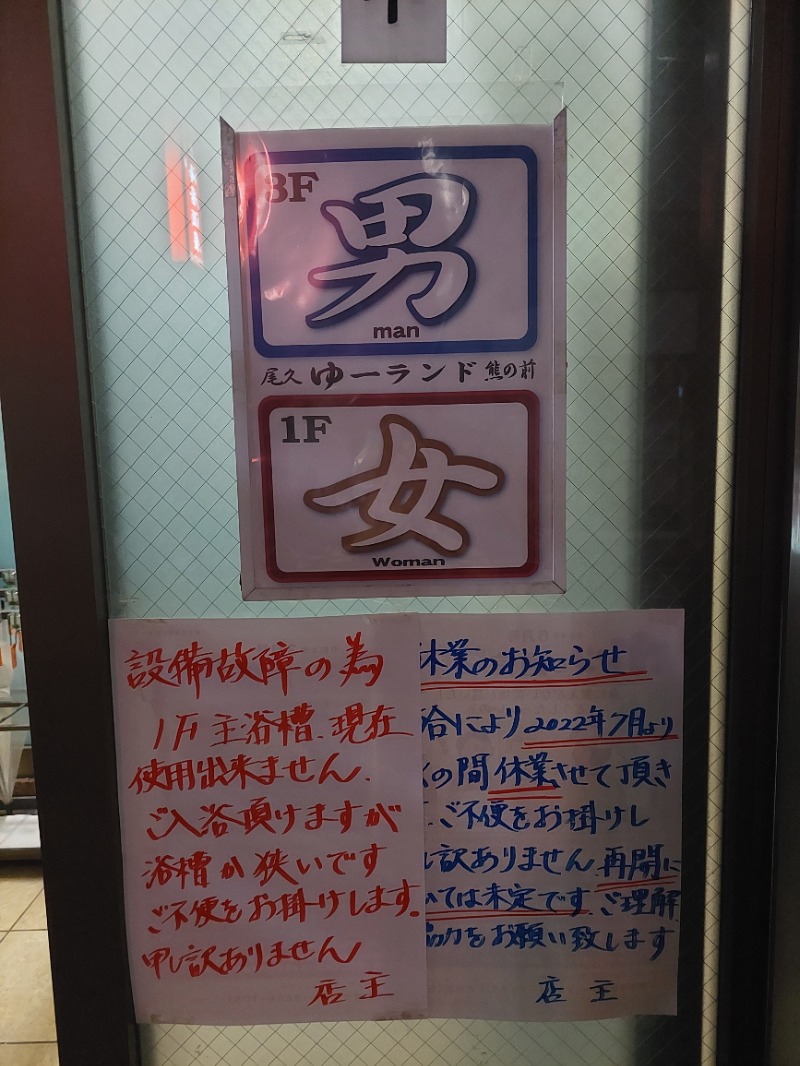 3F
男
man
尾久 ゆーランド 熊の前
1F
女
Woman
設備故障の為
1F主浴槽、現在
使用出来ません.
ご入浴頂けますが
浴槽が狭いです
ご不便をお掛けします。
申し訳ありません
店主
休業のお知らせ
合により2022年7月より
の間休業させて頂き
ご不便をお掛けし
し訳ありません再開に
いては未定です ご理解
協力をお願い致します
店主